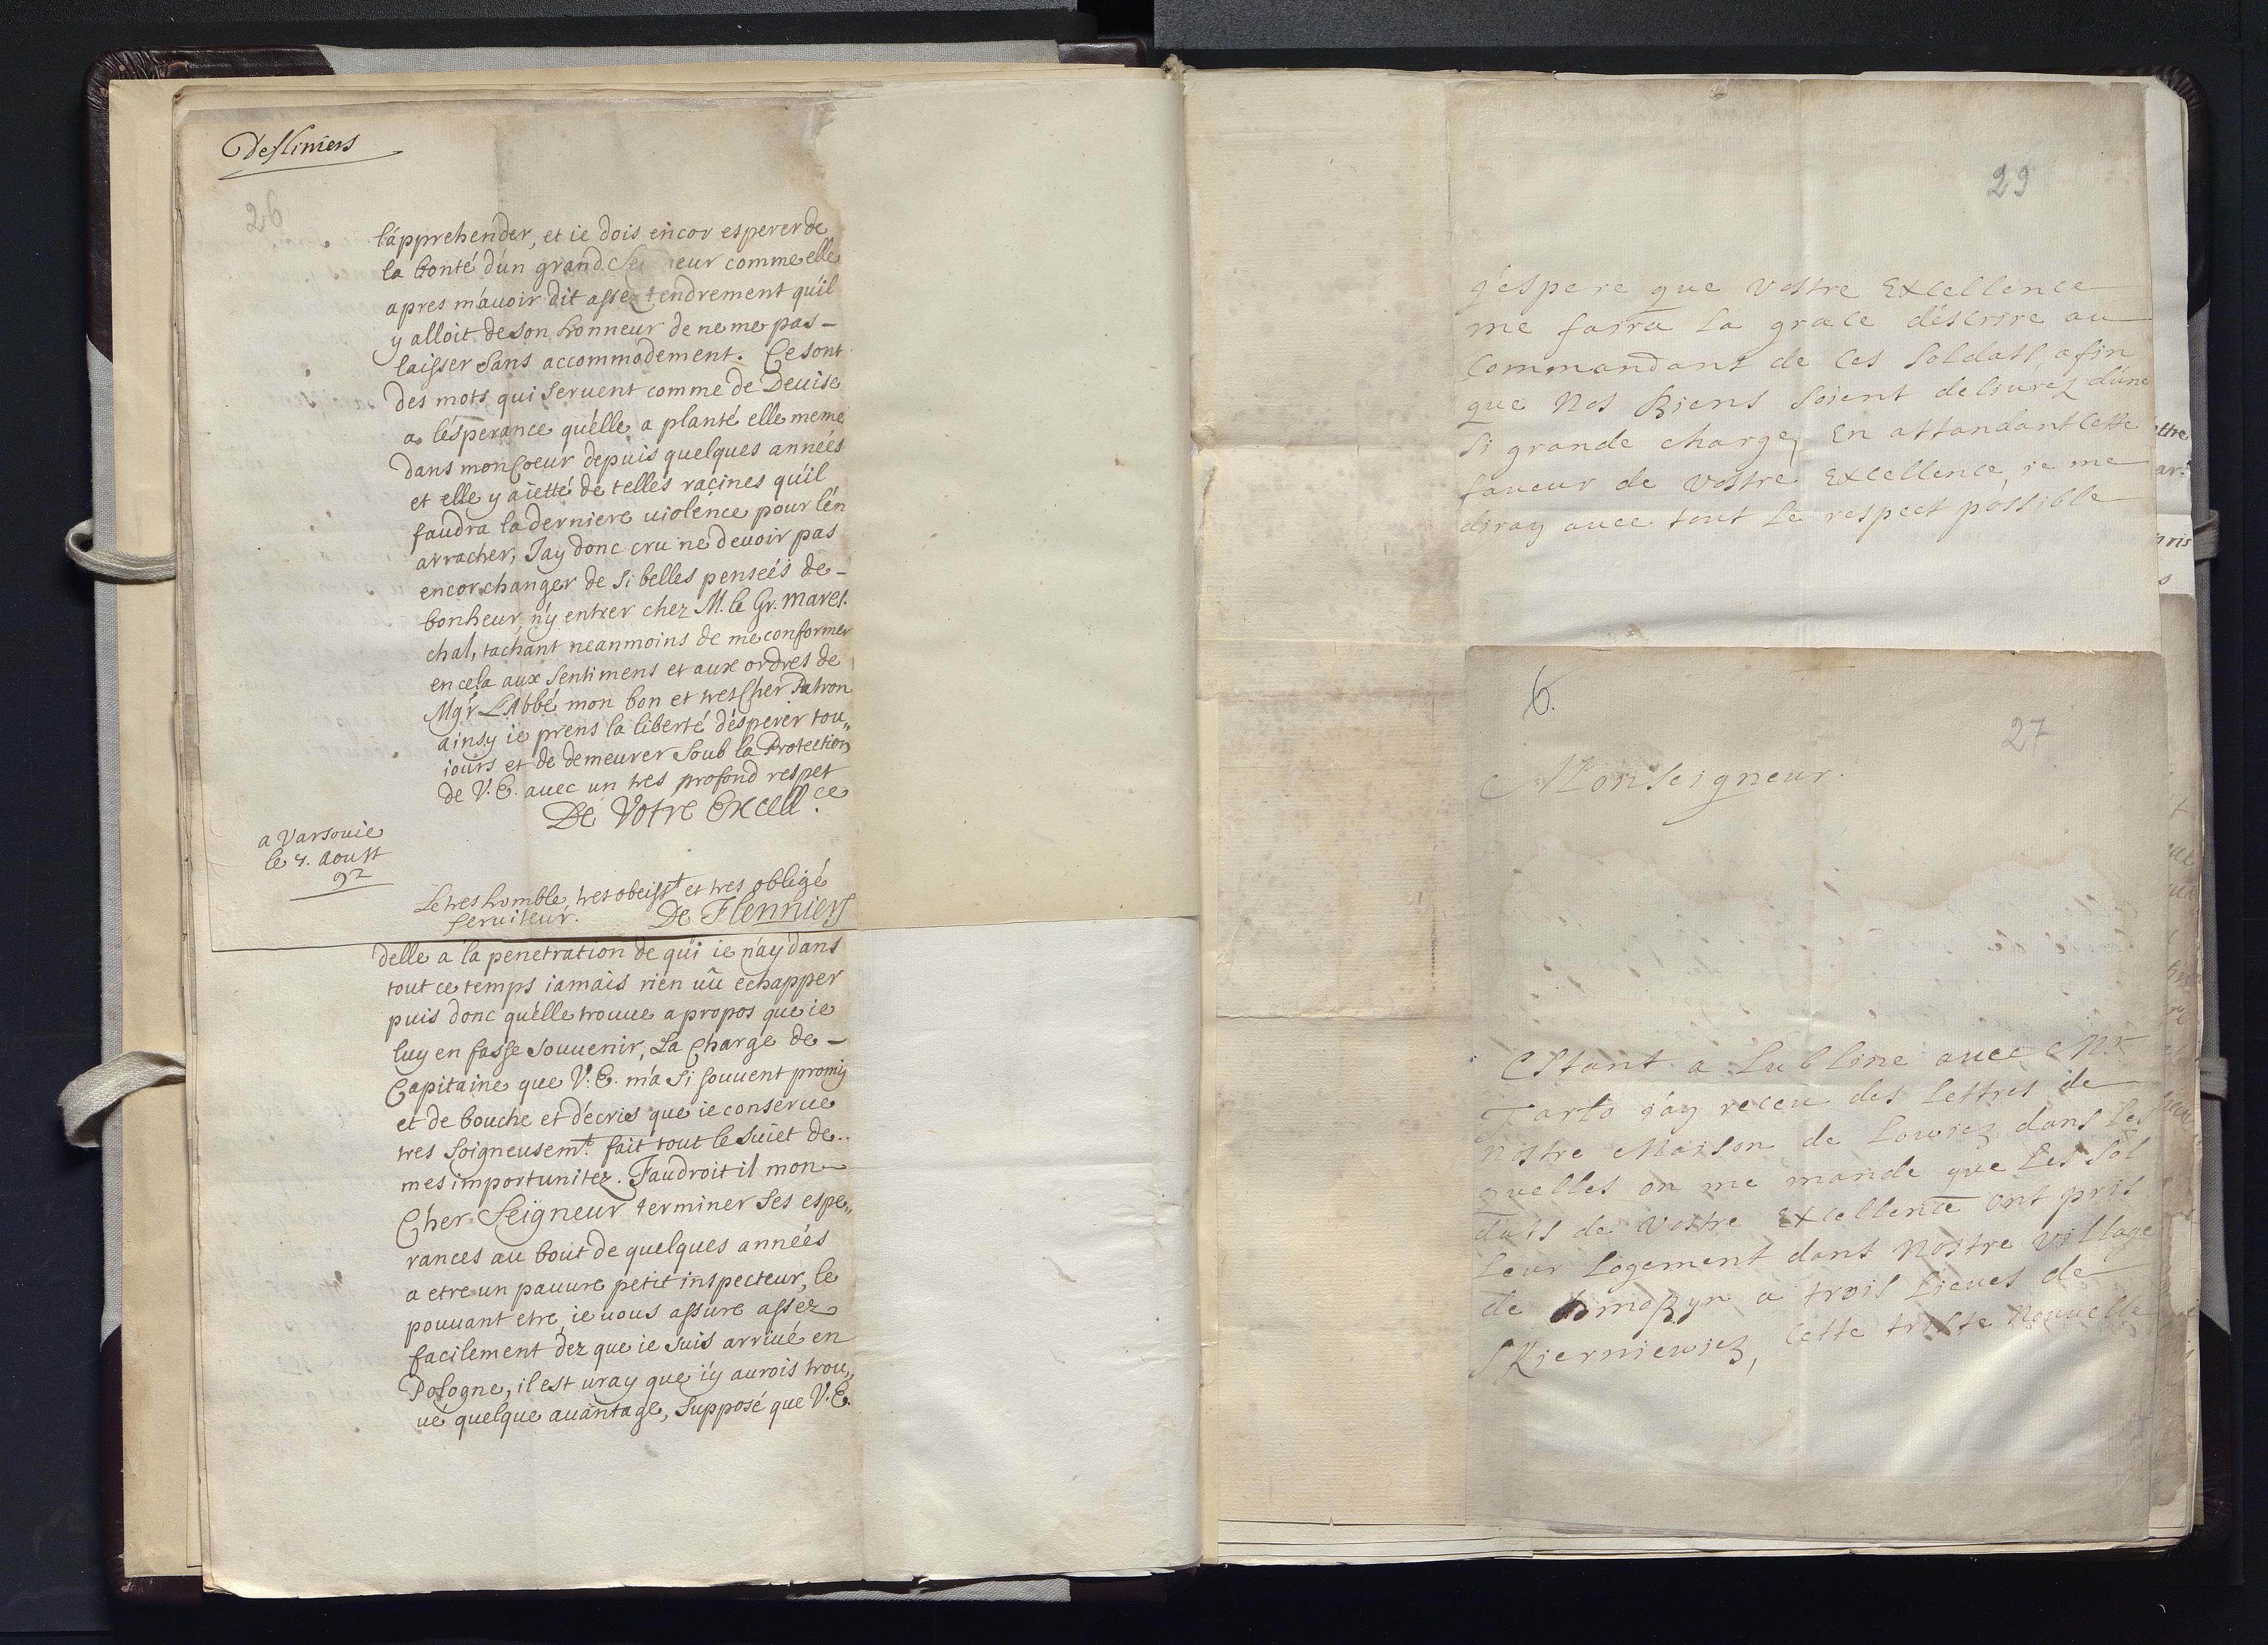 Desliniers
26
l'apprehender, et ie dois encor esperer de
la bonté d'un grand Sei neur comme elle
apres m'auoir dit assez tendrement qu'il
y alloit de son honneur de ne me pas –
laisser sans accommodement. Ce sont
des mots qui seruent comme de Deuise
a l'esperance qu'elle a planté elle meme
dans mon Coeur depuis quelques années
et elle y a ietté de telles racines qu'il
faudra la derniere uiolence pour l'en
arracher, J'ay donc cru ne deuoir pas
encor changer de si belles pensées de –
bonheur, n'y entrer chez M. le Gr. Mares.
chal, tachant neanmoins de me conformer
en cela aux sentimens et aux ordres de
Mgr L'Abbé mon bon et tres Cher Patron
ainsy ie prens la liberté d'esperer tou„
iours et de demeurer soub la Protection
de V. E. auec un tres profond respet
De Votre Excell.ce
a Varsouie
le 4. Aoust
92
Le tres homble, tres obeisst et tres obligé
seruiteur.
De Flenniers
delle a la penetration de qui ie n'ay dans
tout ce temps iamais rien uû echapper
puis donc qu'elle trouue a propos que ie
luy en fasse souuenir, La Charge de –
Capitaine que V. E. m'a si souuent promis
et de bouche et d'ecris que ie conserue
tres soigneusemt. fait tout le suiet de..
mes importunitez. Faudroit il mon –
Cher Seigneur terminer ses espe„
rances au bout de quelques années
a etre un pauure petit inspecteur, le
pouuant etre, ie uous assure assez
facilement dez que ie suis arriué en
Pologne, il est uray que i'y aurois trou„
ué quelque auantage, supposé que V. E.
29
j'espere que Vostre Excellence
me faira la grace d'escrire au
Commandant de ces soldats, afin
que Nos Biens soient deliurez d'une
si grande charge, En attandant cette
faueur de Vostre Excellence, je me
diray auec tout le respect possible
6.
27
Monseigneur.
Estant a Lubline auec Mr
Tarlo j'ay receu des lettres de
nostre Maison de Lowicz dans les
quelles on me mande que les sol
dats de Vostre Excellence ont pris
leur logement dans Nostre village
de a trois lieues de
Skierniewicz, cette triste Nouuelle